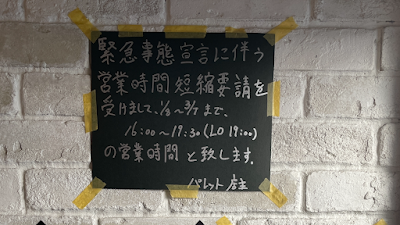 緊急事態宣言に伴う
営業時間短縮要請を
受けまして、1/8〜3/7まで、
16:00〜19:30(LO 19:00)
の営業時間と致します。
パレット 店主